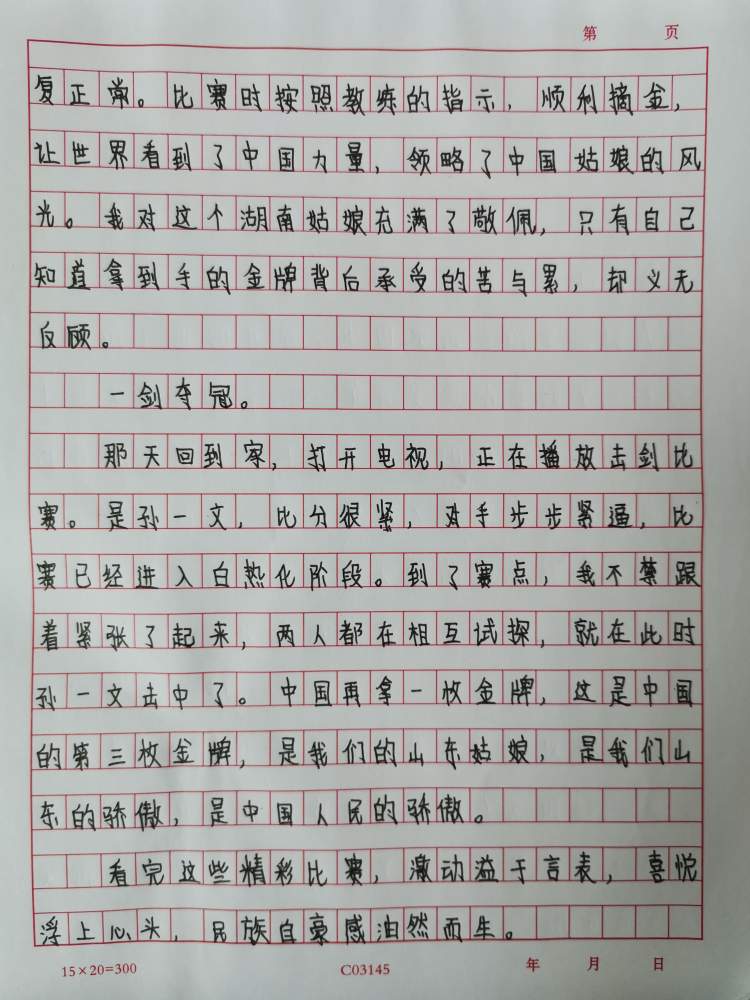 第 页
复正常。比赛时按照教练的指示，顺利摘金，
让世界看到了中国力量，领略了中国姑娘的风
光。我对这个湖南姑娘充满了敬佩，只有自己
知道拿到手的金牌背后承受的苦与累，却义无
反顾。
一剑夺冠。
那天回到家，打开电视，正在播放击剑比
赛。是孙一文，比分很紧，对手步步紧逼，比
赛已经进入白热化阶段。到了赛点，我不禁跟
着紧张了起来，两人都在相互试探，就在此时
孙一文击中了。中国再拿一枚金牌，这是中国
的第三枚金牌，是我们的山东姑娘，是我们山
东的骄傲，是中国人民的骄傲。
看完这些精彩比赛，激动溢于言表，喜悦
浮上心头，民族自豪感油然而生。
15×20=300 C03145 年 月 日